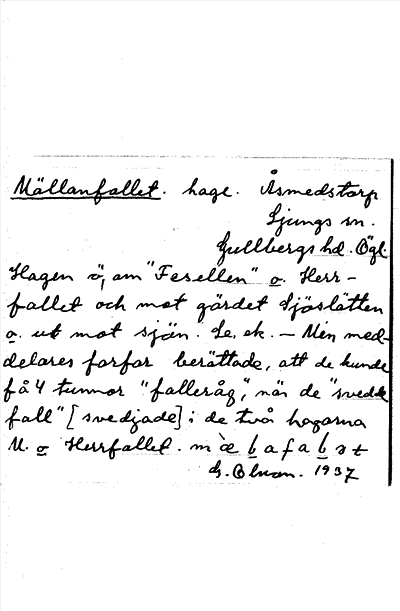 Mällanfallet. hage. Åsmedstorp
Ljungs sn.
Gullbergs hd. Ögl.
Hagen ö, om "Fesellen" o. Herr-
fallet och mot gärdet Sjöslätten
o. ut mot sjön. Le, ek. – Min med-
delares farfar berättade, att de kunde
få 4 tunnor "falleråg", när de "svedde
fall" [svedjade] i de två hagarna
M. o Herrfallet.
G. Olson. 1937